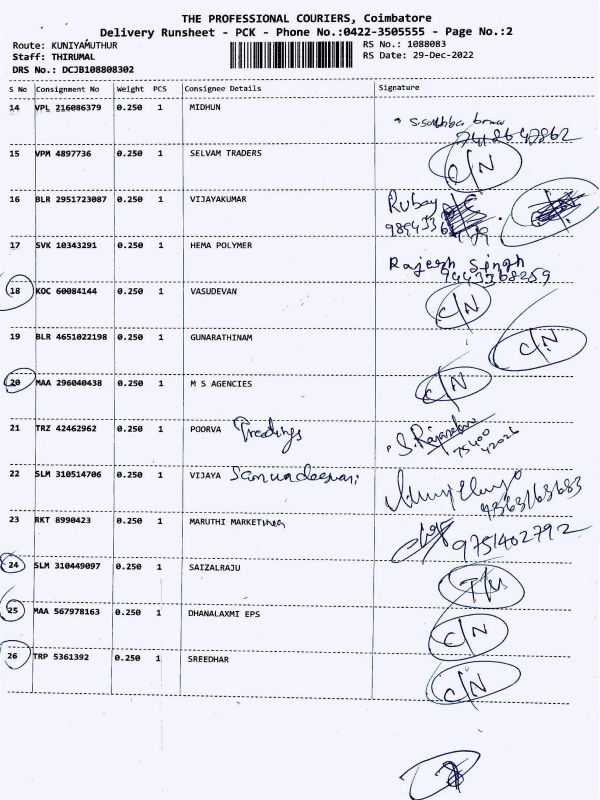 THE PROFESSIONAL COURIERS, Coimbatore
Delivery Runsheet - PCK - Phone No.:0422-3505555 - Page No.:2
Route: KUNIYAMUTHUR RS No.: 1088083
Staff: THIRUMAL RS Date: 29-Dec-2022
DRS No.: DCJB108808302
S No Consignment No Weight PCS Consignee Details Signature
14 VPL 216086379 0.250 1 MIDHUN
15 VPM 4897736 0.250 1 SELVAM TRADERS C/N
16 BLR 2951723087 0.250 1 VIJAYAKUMAR Ruboy
17 SVK 10343291 0.250 1 HEMA POLYMER Rajesh Singh
9443368259
18 KOC 60084144 0.250 1 VASUDEVAN C/N
19 BLR 4651022198 0.250 1 GUNARATHINAM C/N
20 MAA 296040438 0.250 1 M S AGENCIES C/N
21 TRZ 42462962 0.250 1 POORVA Treadings
75400
42026
22 SLM 310514706 0.250 1 VIJAYA
23 RKT 8990423 0.250 1 MARUTHI MARKET 9751402792
24 SLM 310449097 0.250 1 SAIZALRAJU
25 MAA 567978163 0.250 1 DHANALAXMI EPS C/N
26 TRP 5361392 0.250 1 SREEDHAR C/N